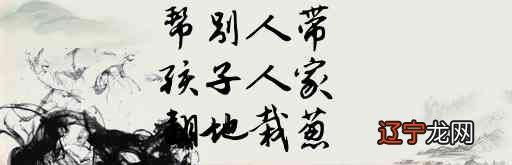 帮别人带
孩子人家
翻地栽葱
辽宁龙网